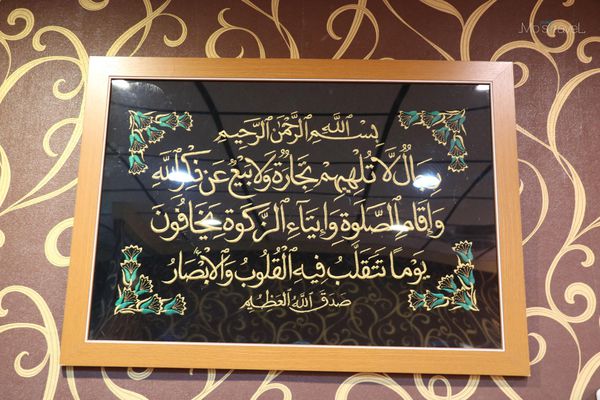 Mo's Travel
بسم الله الرحمن الرحيم
رجال لا تلهيهم تجارة ولا بيع عن ذكر الله
وإقام الصلوة وإيتاء الزكوة يخافون
يوما تتقلب فيه القلوب والأبصار
صدق الله العظيم